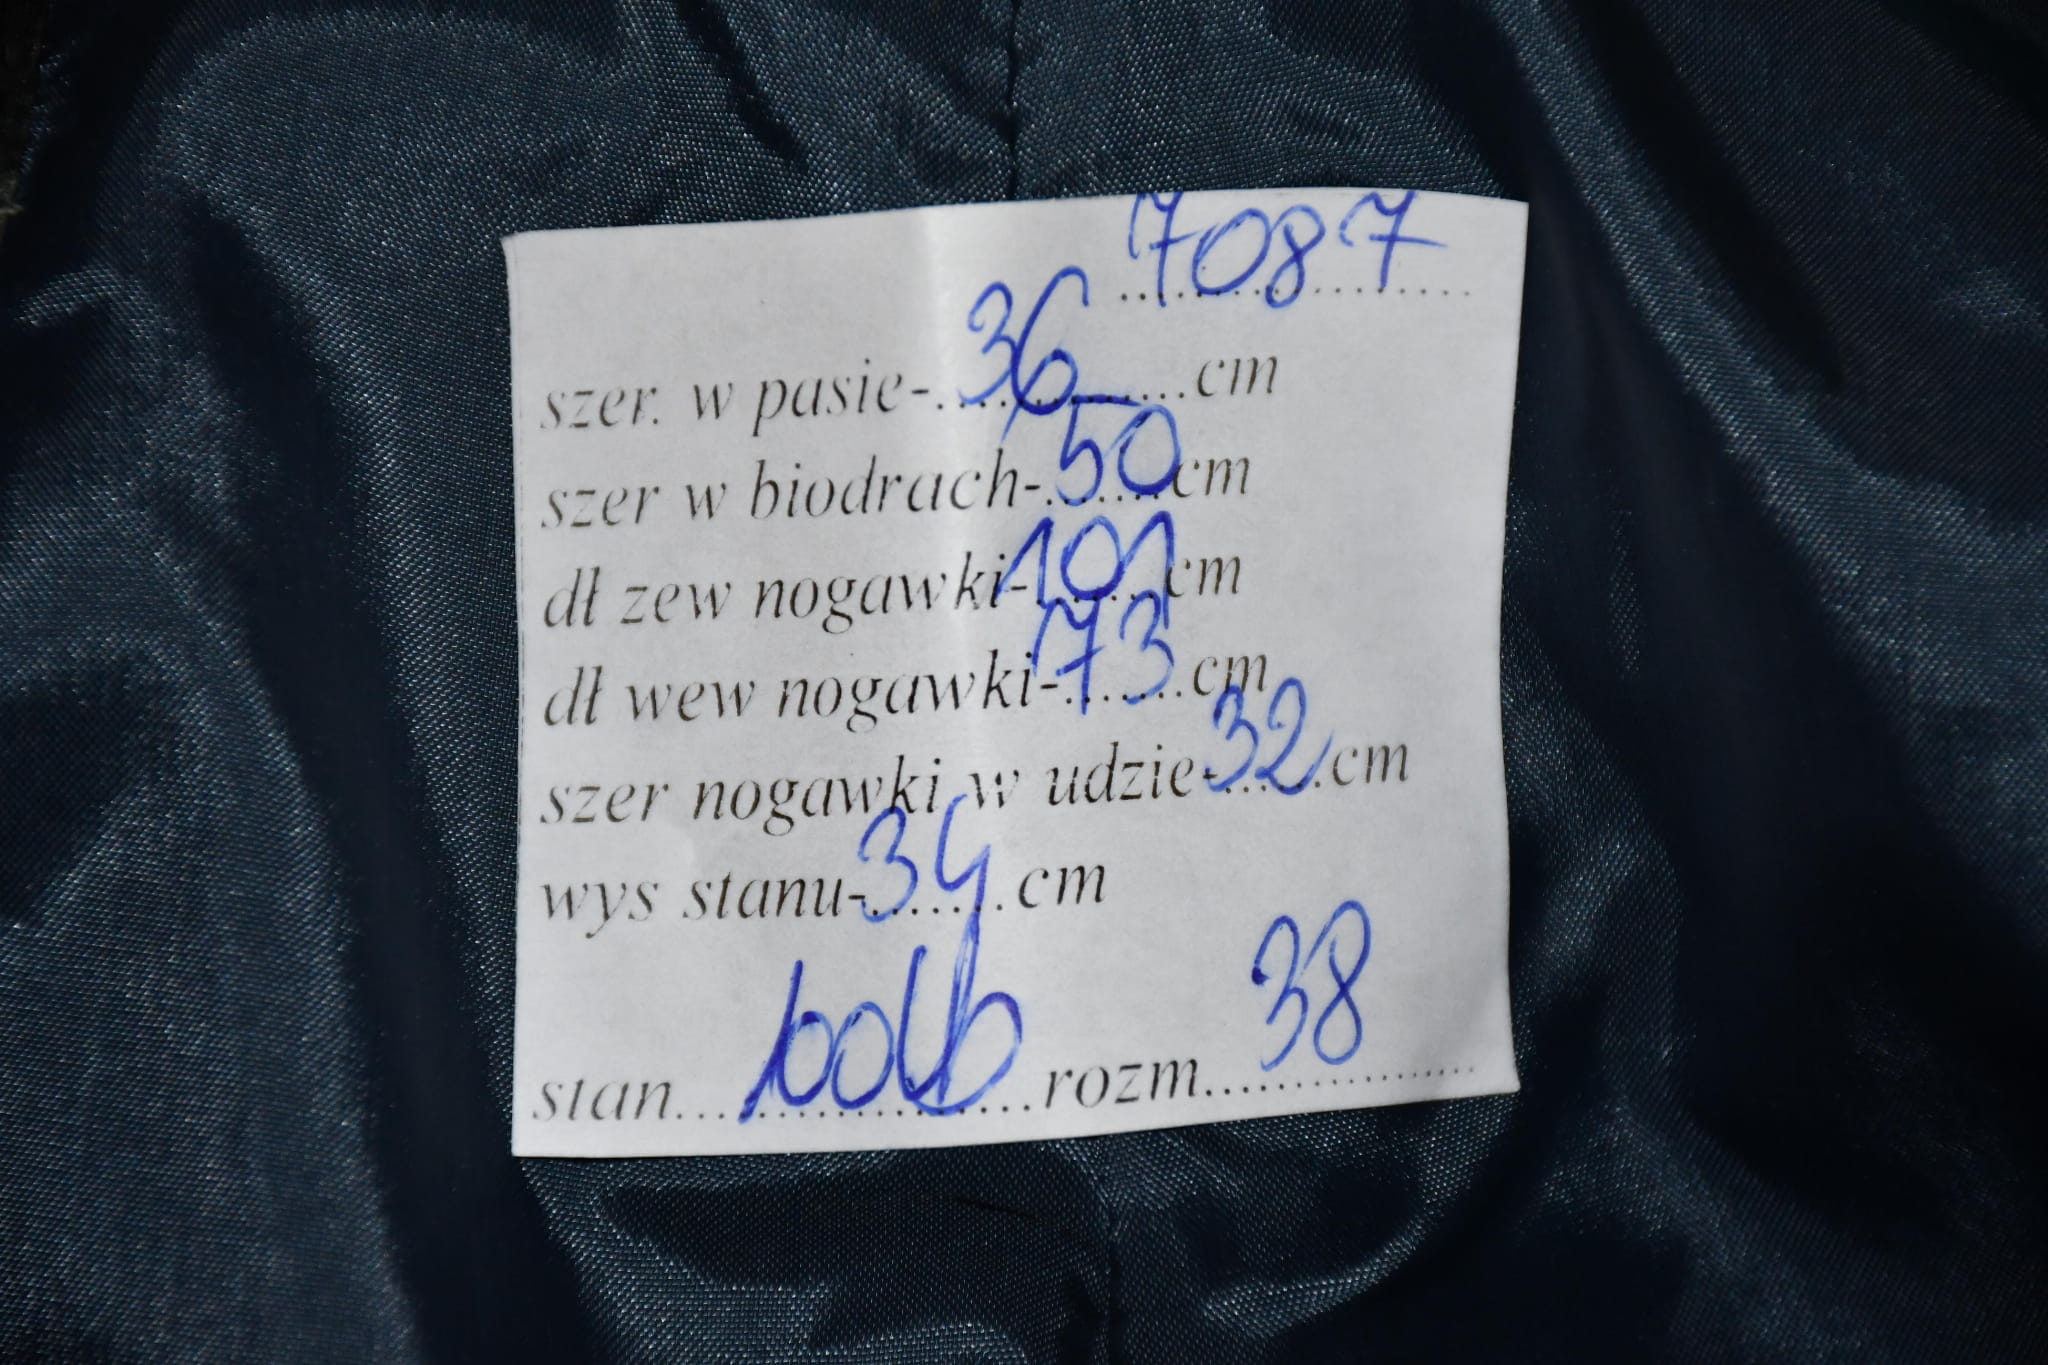 7087
szer. w pasie-..36......cm
szer w biodrach-.50...cm
dł zew nogawki-101cm
dł wew nogawki-.73...cm
szer nogawki w udzie-32.cm
wys stanu-.34..cm
stan..................rozm...38..........